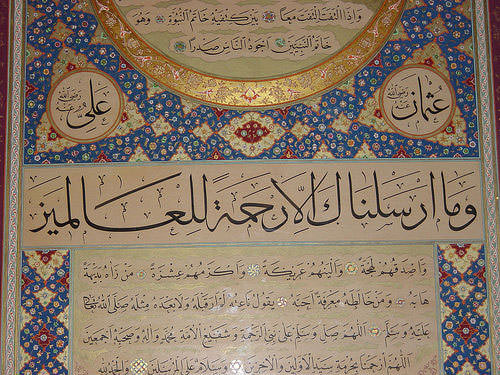 وَاِذَا الْتَفَتَ الْتَفَتَ مَعًا بَيْنَ كَتِفَيْهِ خَاتَمُ النُّبُوَّةِ وَهُوَ
خَاتَمُ النَّبِيِّينَ اَجْوَدُ النَّاسِ صَدْرًا
عُثْمَان رضي الله عنه
عَلِيّ رضي الله عنه
وما ارسلناك الا رحمة للعالمين
وَاَصْدَقُهُمْ لَهْجَةً وَاَلْيَنُهُمْ عَرِيكَةً وَاَكْرَمُهُمْ عِشْرَةً مَنْ رَاٰهُ بَدِيهَةً
هَابَهُ وَمَنْ خَالَطَهُ مَعْرِفَةً اَحَبَّهُ يَقُولُ نَاعِتُهُ لَمْ اَرَ قَبْلَهُ وَلَا بَعْدَهُ مِثْلَهُ صَلَّى اللهُ تَعَالَى
عَلَيْهِ وَسَلَّمَ اَللّٰهُمَّ صَلِّ وَسَلِّمْ عَلَى نَبِيِّ الرَّحْمَةِ وَشَفِيعِ الْاُمَّةِ مُحَمَّدٍ وَاٰلِهِ وَصَحْبِهِ اَجْمَعِينَ
اَللّٰهُمَّ ارْحَمْنَا بِحُرْمَةِ سَيِّدِ الْاَوَّلِينَ وَالْاٰخِرِينَ وَسَلَامٌ عَلَى الْمُرْسَلِينَ وَالْحَمْدُ لِلّٰهِ